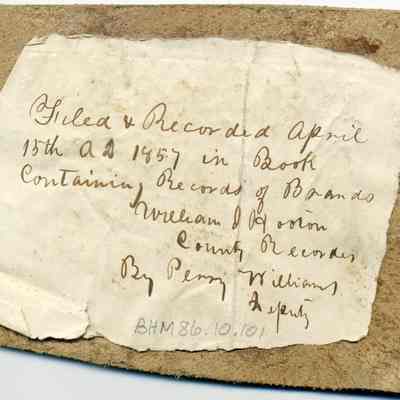 Filed & Recorded April
15th A D 1857 in Book
Containing Records of Brands
William J Hooton
County Recorder
By Perry Williams
Deputy
BHM 86.10.101